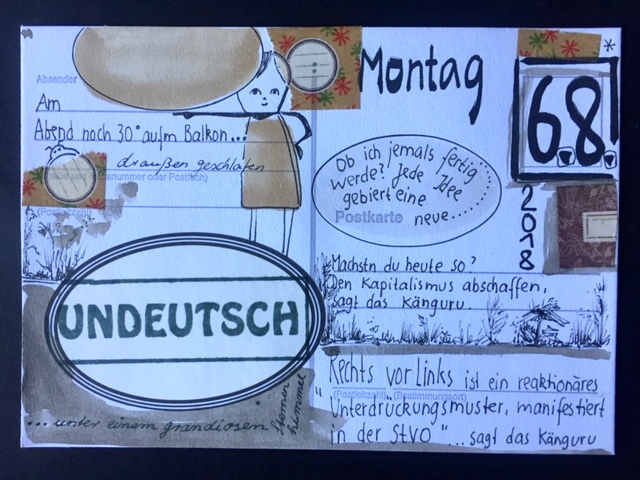 Absender
Am
Abend noch 30° aufm Balkon...
draußen geschlafen
snummer oder Postfach)
(Postleitzahl)
UNDEUTSCH
... unter einem grandiosen
Sternen
himmel
Montag
*
6.8.
2018
Ob ich jemals fertig
werde? Jede Idee
gebiert eine
neue........
Postkarte
Machstn du heute so?
Den Kapitalismus abschaffen,
sagt das Känguru
Rechts vor Links ist ein reaktionäres
(Postleitzahl) (Bestimmungsort)
"Unterdrückungsmuster, manifestiert
in der StVO"... sagt das Känguru